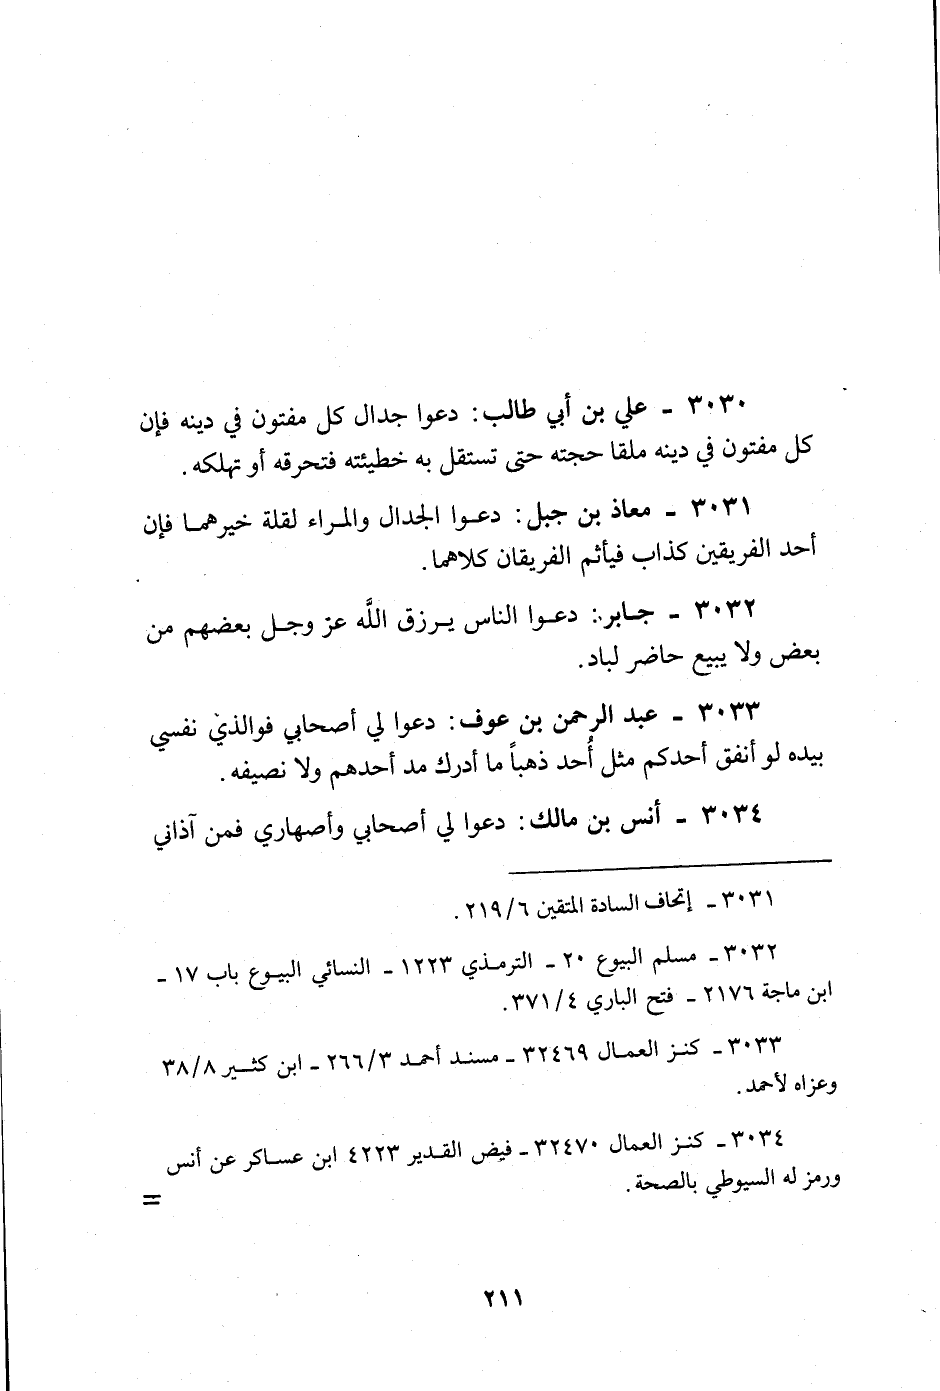 ٣٠٣٠ ـ علي بن أبي طالب: دعوا جدال كل مفتون في دينه فإن
كل مفتون في دينه ملقا حجته حتى تستقل به خطيئته فتحرقه أو تهلكه.
٣٠٣١ ـ معاذ بن جبل: دعوا الجدال والمراء لقلة خيرهما فإن
أحد الفريقين كذاب فيأثم الفريقان كلاهما.
٣٠٣٢ ـ جابر: دعوا الناس يرزق اللَّه عز وجل بعضهم من
بعض ولا يبيع حاضر لباد.
٣٠٣٣ ـ عبد الرحمن بن عوف: دعوا لي أصحابي فوالذي نفسي
بيده لو أنفق أحدكم مثل أُحد ذهباً ما أدرك مد أحدهم ولا نصيفه.
٣٠٣٤ ـ أنس بن مالك: دعوا لي أصحابي وأصهاري فمن آذاني
٣٠٣١ ـ إتحاف السادة المتقين ٢١٩/٦.
٣٠٣٢ ـ مسلم البيوع ٢٠ ـ الترمذي ١٢٢٣ ـ النسائي البيوع باب ١٧ ـ
ابن ماجة ٢١٧٦ ـ فتح الباري ٣٧١/٤.
٣٠٣٣ ـ كنز العمال ٣٢٤٦٩ ـ مسند أحمد ٢٦٦/٣ ـ ابن كثير ٣٨/٨
وعزاه لأحمد.
٣٠٣٤ ـ كنز العمال ٣٢٤٧٠ ـ فيض القدير ٤٢٢٣ ابن عساكر عن أنس
ورمز له السيوطي بالصحة.
=
٢١١